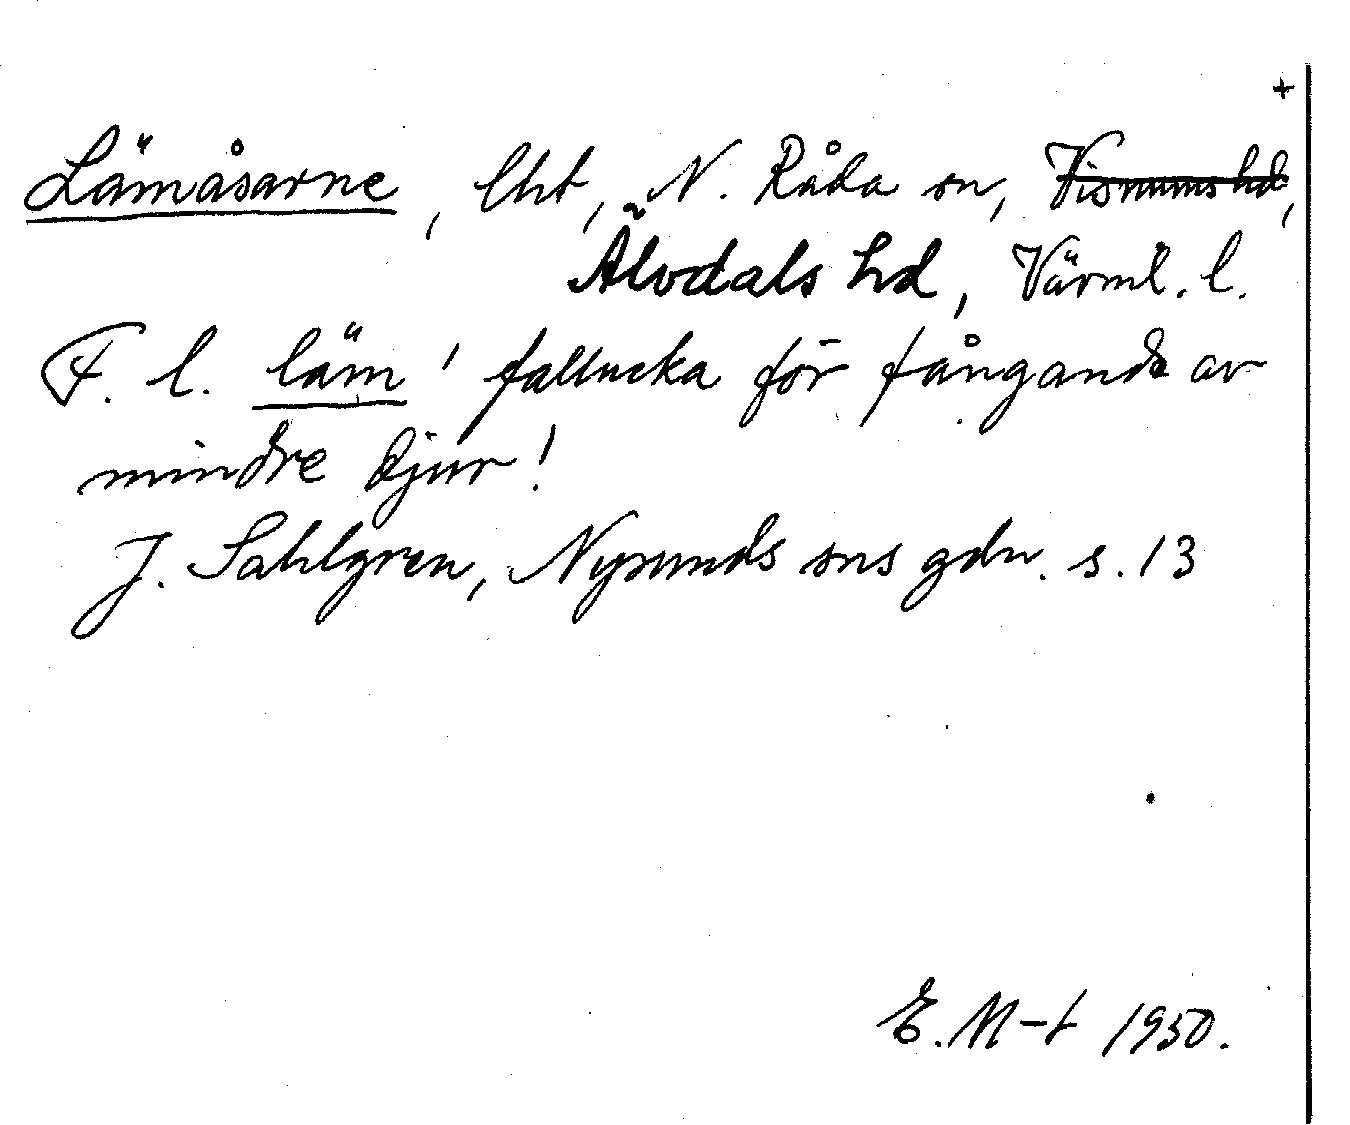 +
Lämåsarne, lht, N. Råda sn, Visnums hd,
Älvdals hd, Värml. l.
F. l. läm ' fallucka för fångande av
mindre djur!
J. Sahlgren, Nysunds sns gdn. s. 13
E. M-t 1950.